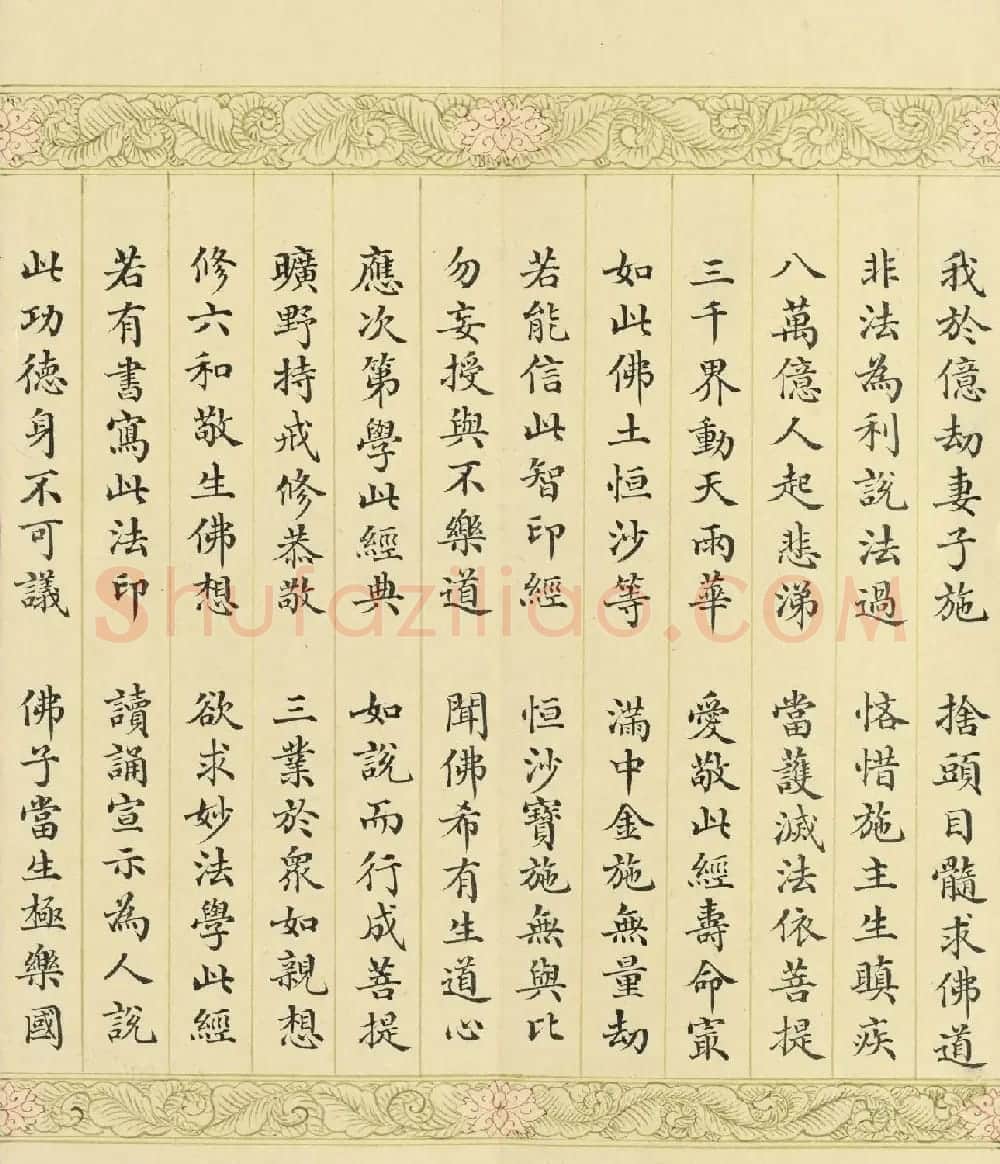 我於億劫妻子施　捨頭目髓求佛道
非法為利說法過　悋惜施主生瞋疾
八萬億人起悲涕　當護滅法依菩提
三千界動天雨華　愛敬此經壽命㝡
如此佛土恒沙等　滿中金施無量劫
若能信此智印經　恒沙寶施無與比
勿妄授與不樂道　聞佛希有生道心
應次第學此經典　如說而行成菩提
曠野持戒修恭敬　三業於衆如親想
修六和敬生佛想　欲求妙法學此經
若有書寫此法印　讀誦宣示為人說
此功德身不可議　佛子當生極樂國
Shufaziliao.COM